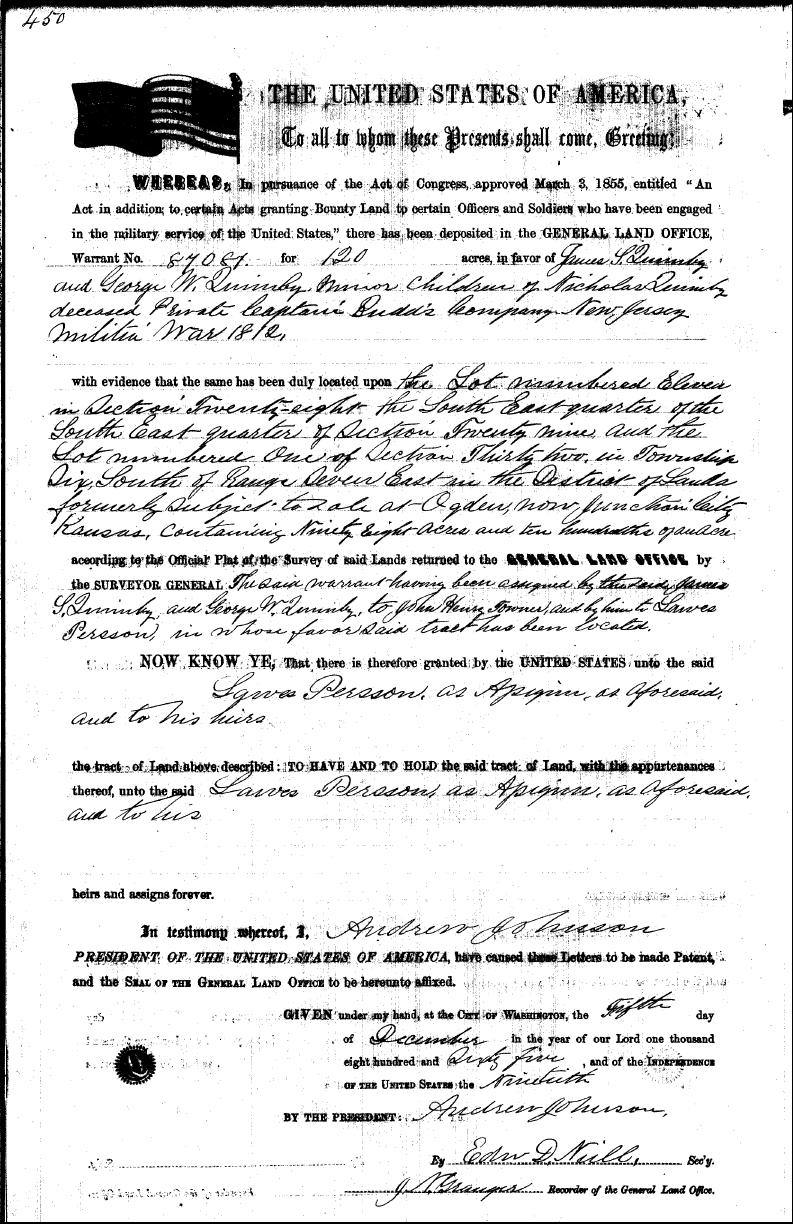 450
THE UNITED STATES OF AMERICA,
To all to whom these Presents shall come, Greeting:
WHEREAS, In pursuance of the Act of Congress, approved March 3, 1855, entitled "An
Act in addition to certain Acts granting Bounty Land to certain Officers and Soldiers who have been engaged
in the military service of the United States," there has been deposited in the GENERAL LAND OFFICE,
Warrant No. for 120 acres, in favor of James S. Quimby
and George W. Quimby minor children of Nicholas Quimby
deceased Private Captain Budd's Company New Jersey
Militia War 1812,
with evidence that the same has been duly located upon the Lot numbered Eleven
in Section Twenty-eight the South East quarter of the
South East quarter of Section Twenty nine and the
Lot numbered One of Section Thirty two, in Township
Six, South of Range Seven East in the District of Lands
formerly subject to sale at Ogden, now Junction City
Kansas, containing Ninety Eight Acres and ten hundredths of an acre
according to the Official Plat of the Survey of said Lands returned to the GENERAL LAND OFFICE by
the SURVEYOR GENERAL The said warrant having been assigned by the said James
S. Quimby, and George W. Quimby, to John Henry Towner, and by him to Lawes
Persson, in whose favor said tract has been located.
NOW KNOW YE, That there is therefore granted by the UNITED STATES unto the said
Lawes Persson, as Assignee, as aforesaid,
and to his heirs
the tract of Land above described: TO HAVE AND TO HOLD the said tract of Land, with the appurtenances
thereof, unto the said Lawes Persson, as Assignee, as aforesaid,
and to his
heirs and assigns forever.
In testimony whereof, I, Andrew Johnson
PRESIDENT OF THE UNITED STATES OF AMERICA, have caused these Letters to be made Patent,
and the SEAL OF THE GENERAL LAND OFFICE to be hereunto affixed.
GIVEN under my hand, at the CITY OF WASHINGTON, the Fifth day
of December in the year of our Lord one thousand
eight hundred and Sixty five, and of the INDEPENDENCE
OF THE UNITED STATES the Ninetieth
BY THE PRESIDENT: Andrew Johnson,
By Edw D. Neill, Sec'y.
J. N. Granger Recorder of the General Land Office.